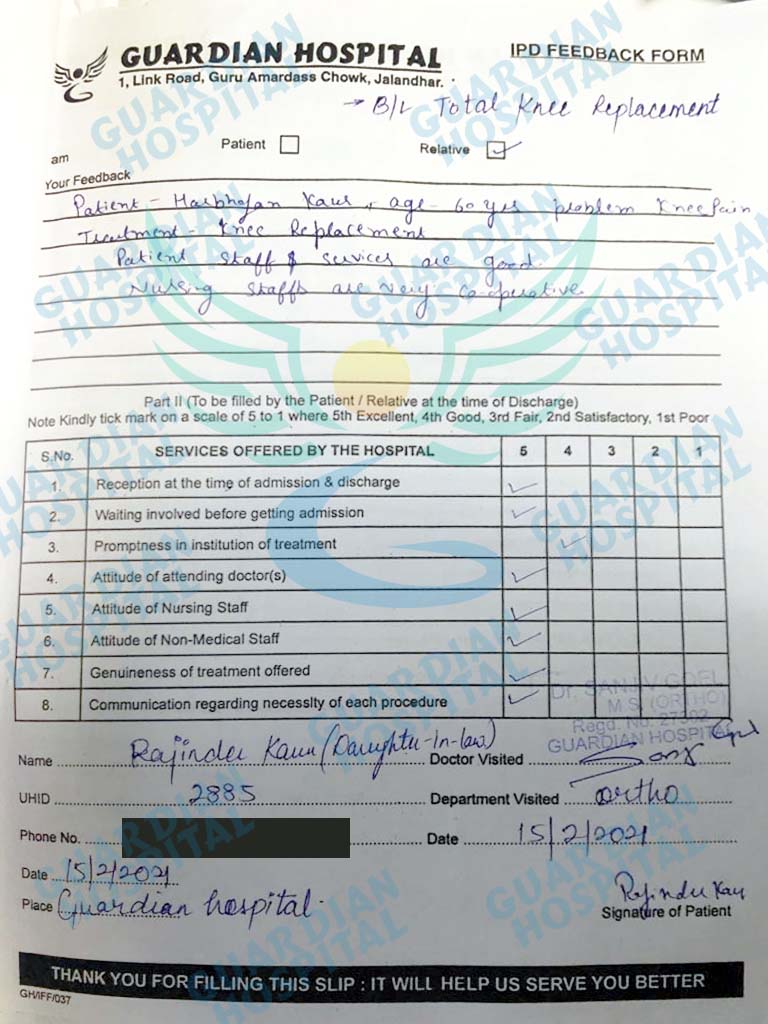 GUARDIAN HOSPITAL
1, Link Road, Guru Amardass Chowk, Jalandhar.
IPD FEEDBACK FORM
→ B/L Total Knee Replacement
am
Patient
Relative ✓
Your Feedback
Patient - Harbhajan Kaur, age - 60 yrs problem Knee Pain
Treatment - Knee Replacement
Patient staff & services are good.
Nursing staffs are very co-operative
Part II (To be filled by the Patient / Relative at the time of Discharge)
Note Kindly tick mark on a scale of 5 to 1 where 5th Excellent, 4th Good, 3rd Fair, 2nd Satisfactory, 1st Poor
S.No. SERVICES OFFERED BY THE HOSPITAL 5 4 3 2 1
1. Reception at the time of admission & discharge ✓
2. Waiting involved before getting admission ✓
3. Promptness in institution of treatment ✓
4. Attitude of attending doctor(s) ✓
5. Attitude of Nursing Staff ✓
6. Attitude of Non-Medical Staff ✓
7. Genuineness of treatment offered ✓
8. Communication regarding necessity of each procedure ✓
Dr. SANJIV GOEL
M.S. (ORTHO)
Regd. No. 27302
GUARDIAN HOSPITAL
Name Rajinder Kaur (Daughter-In-law) Doctor Visited
UHID 2885 Department Visited ortho
Phone No. Date 15/2/2021
Date 15/2/2021
Place Guardian hospital.
Rajinder Kaur
Signature of Patient
THANK YOU FOR FILLING THIS SLIP : IT WILL HELP US SERVE YOU BETTER
GH/IFF/037
GUARDIAN HOSPITAL